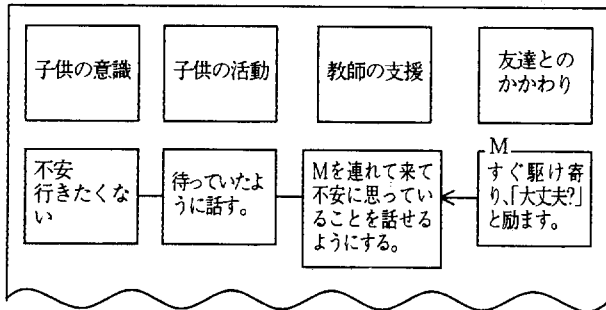 子供の意識
子供の活動
教師の支援
友達との
かかわり
不安
行きたくな
い
待っていたよ
うに話す。
Mを連れて来て
不安に思ってい
ることを話せる
ようにする。
M
すぐ駆け寄
り、「大丈夫?」
と励ます。